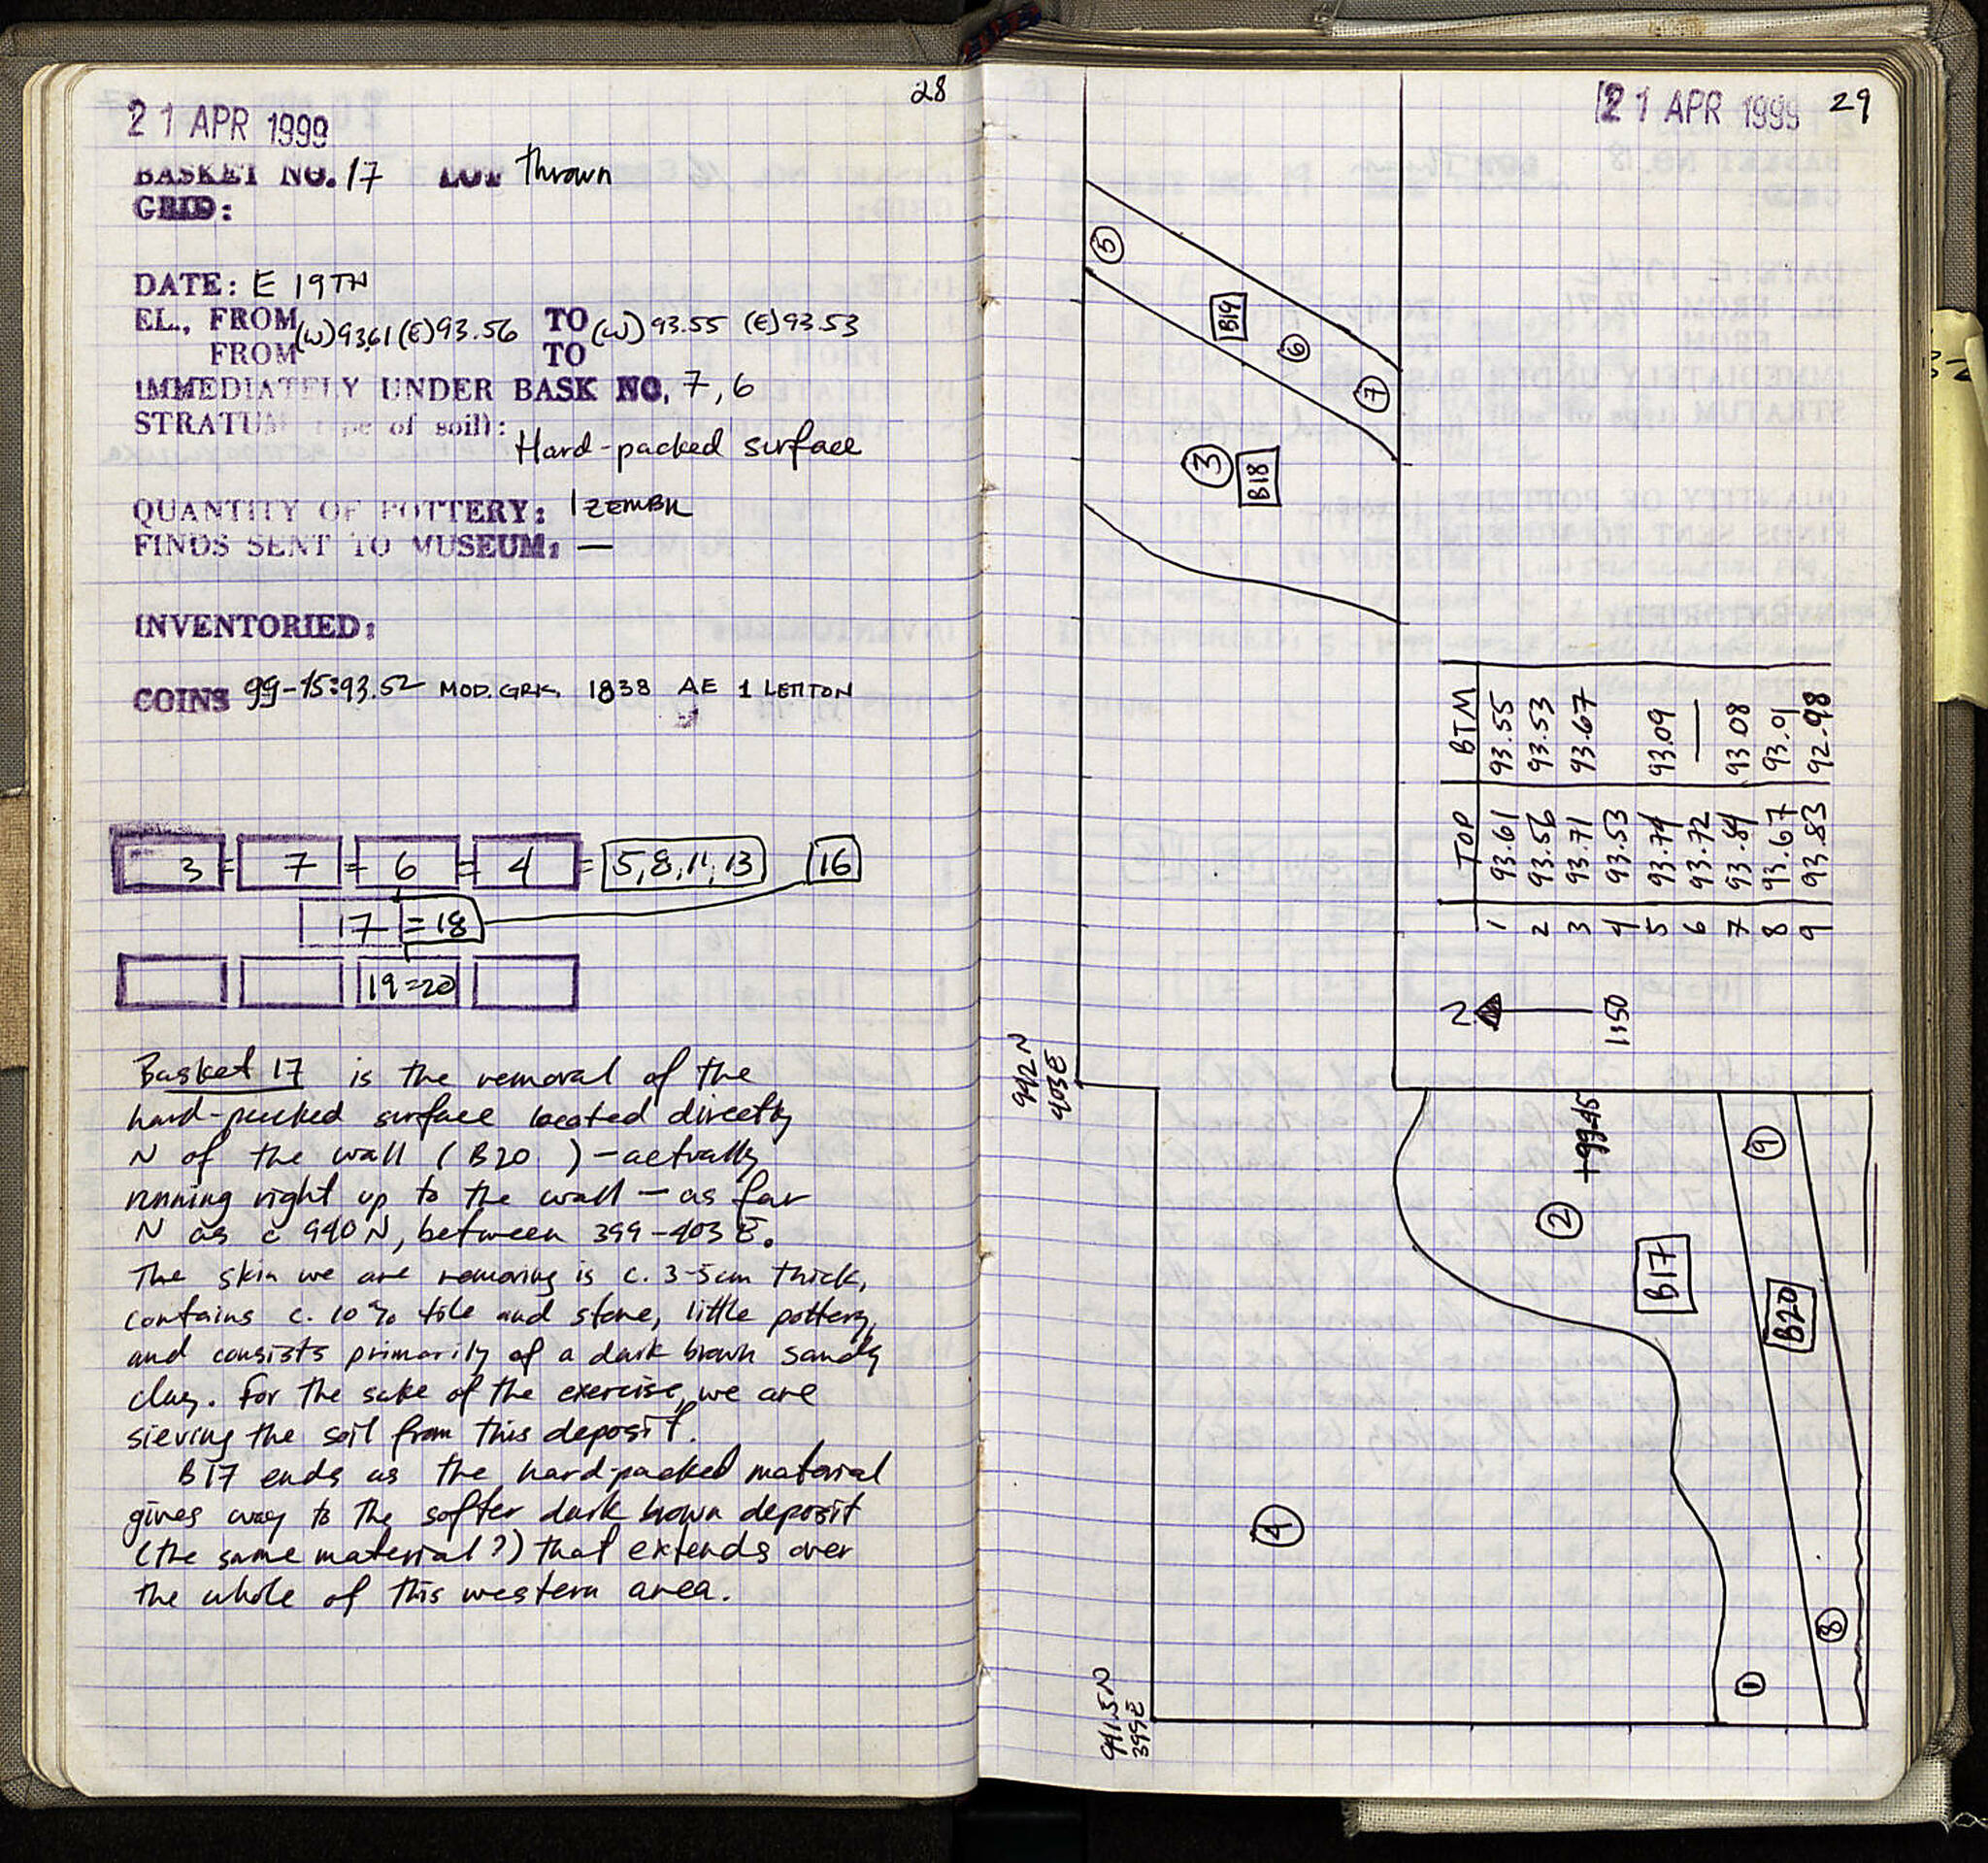 28
21 APR 1999
BASKET NO. 17 LOT thrown
GRID:
DATE: E 19TH
EL., FROM (W) 93.61 (E) 93.56 TO (W) 93.55 (E) 93.53
FROM TO
IMMEDIATELY UNDER BASK NO. 7, 6
STRATUM (type of soil):
Hard-packed surface
QUANTITY OF POTTERY: 1 ZEMBIL
FINDS SENT TO MUSEUM: —
INVENTORIED:
COINS 99-45:93.52 MOD. GRK. 1838 AE 1 LEPTON
3 = 7 = 6 = 4 = 5,8,11,13 16
17 = 18
19=20
Basket 17 is the removal of the
hard-packed surface located directly
N of the wall (B20 ) - actually
running right up to the wall - as far
N as c 940 N, between 399-403 E.
The skin we are removing is c. 3-5cm thick,
contains c. 10% tile and stone, little pottery,
and consists primarily of a dark brown sandy
clay. For the sake of the exercise, we are
sieving the soil from this deposit.
B17 ends as the hard-packed material
gives way to the softer dark brown deposit
(the same material?) that extends over
the whole of this western area.
21 APR 1999 29
5
B19
6
7
3 B18
TOP BTM
1 93.61 93.55
2 93.56 93.53
3 93.71 93.67
4 93.53
5 93.74 93.09
6 93.72 —
7 93.84 93.08
8 93.67 93.01
9 93.83 92.98
N
1:50
942 N
403 E
+99-45
9
2
B17
B20
4
8
1
941.5 N
399 E